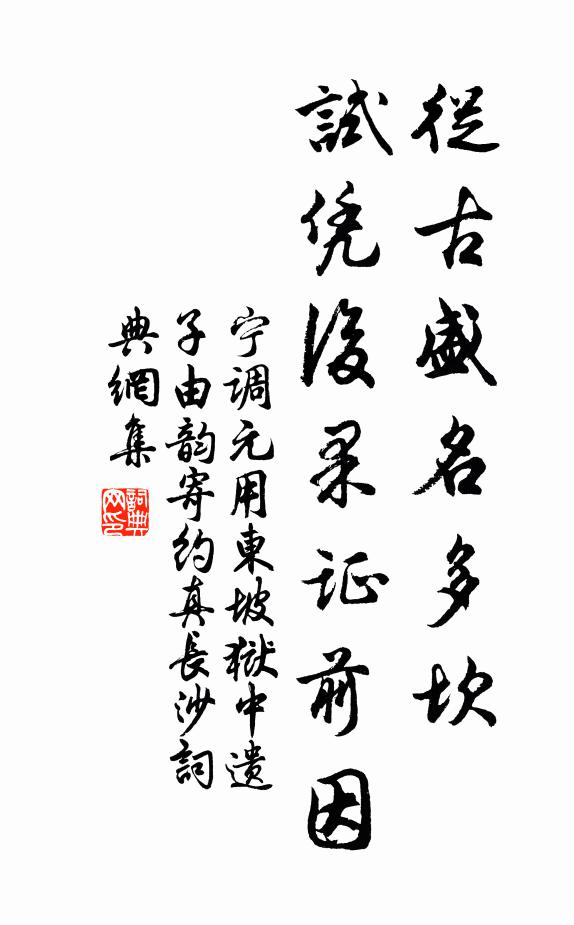 從古盛名多坎
試凭後果证前因
宁調元用東坡獄中遺
子由韵寄约真長沙詞
典網集
詞典
网印